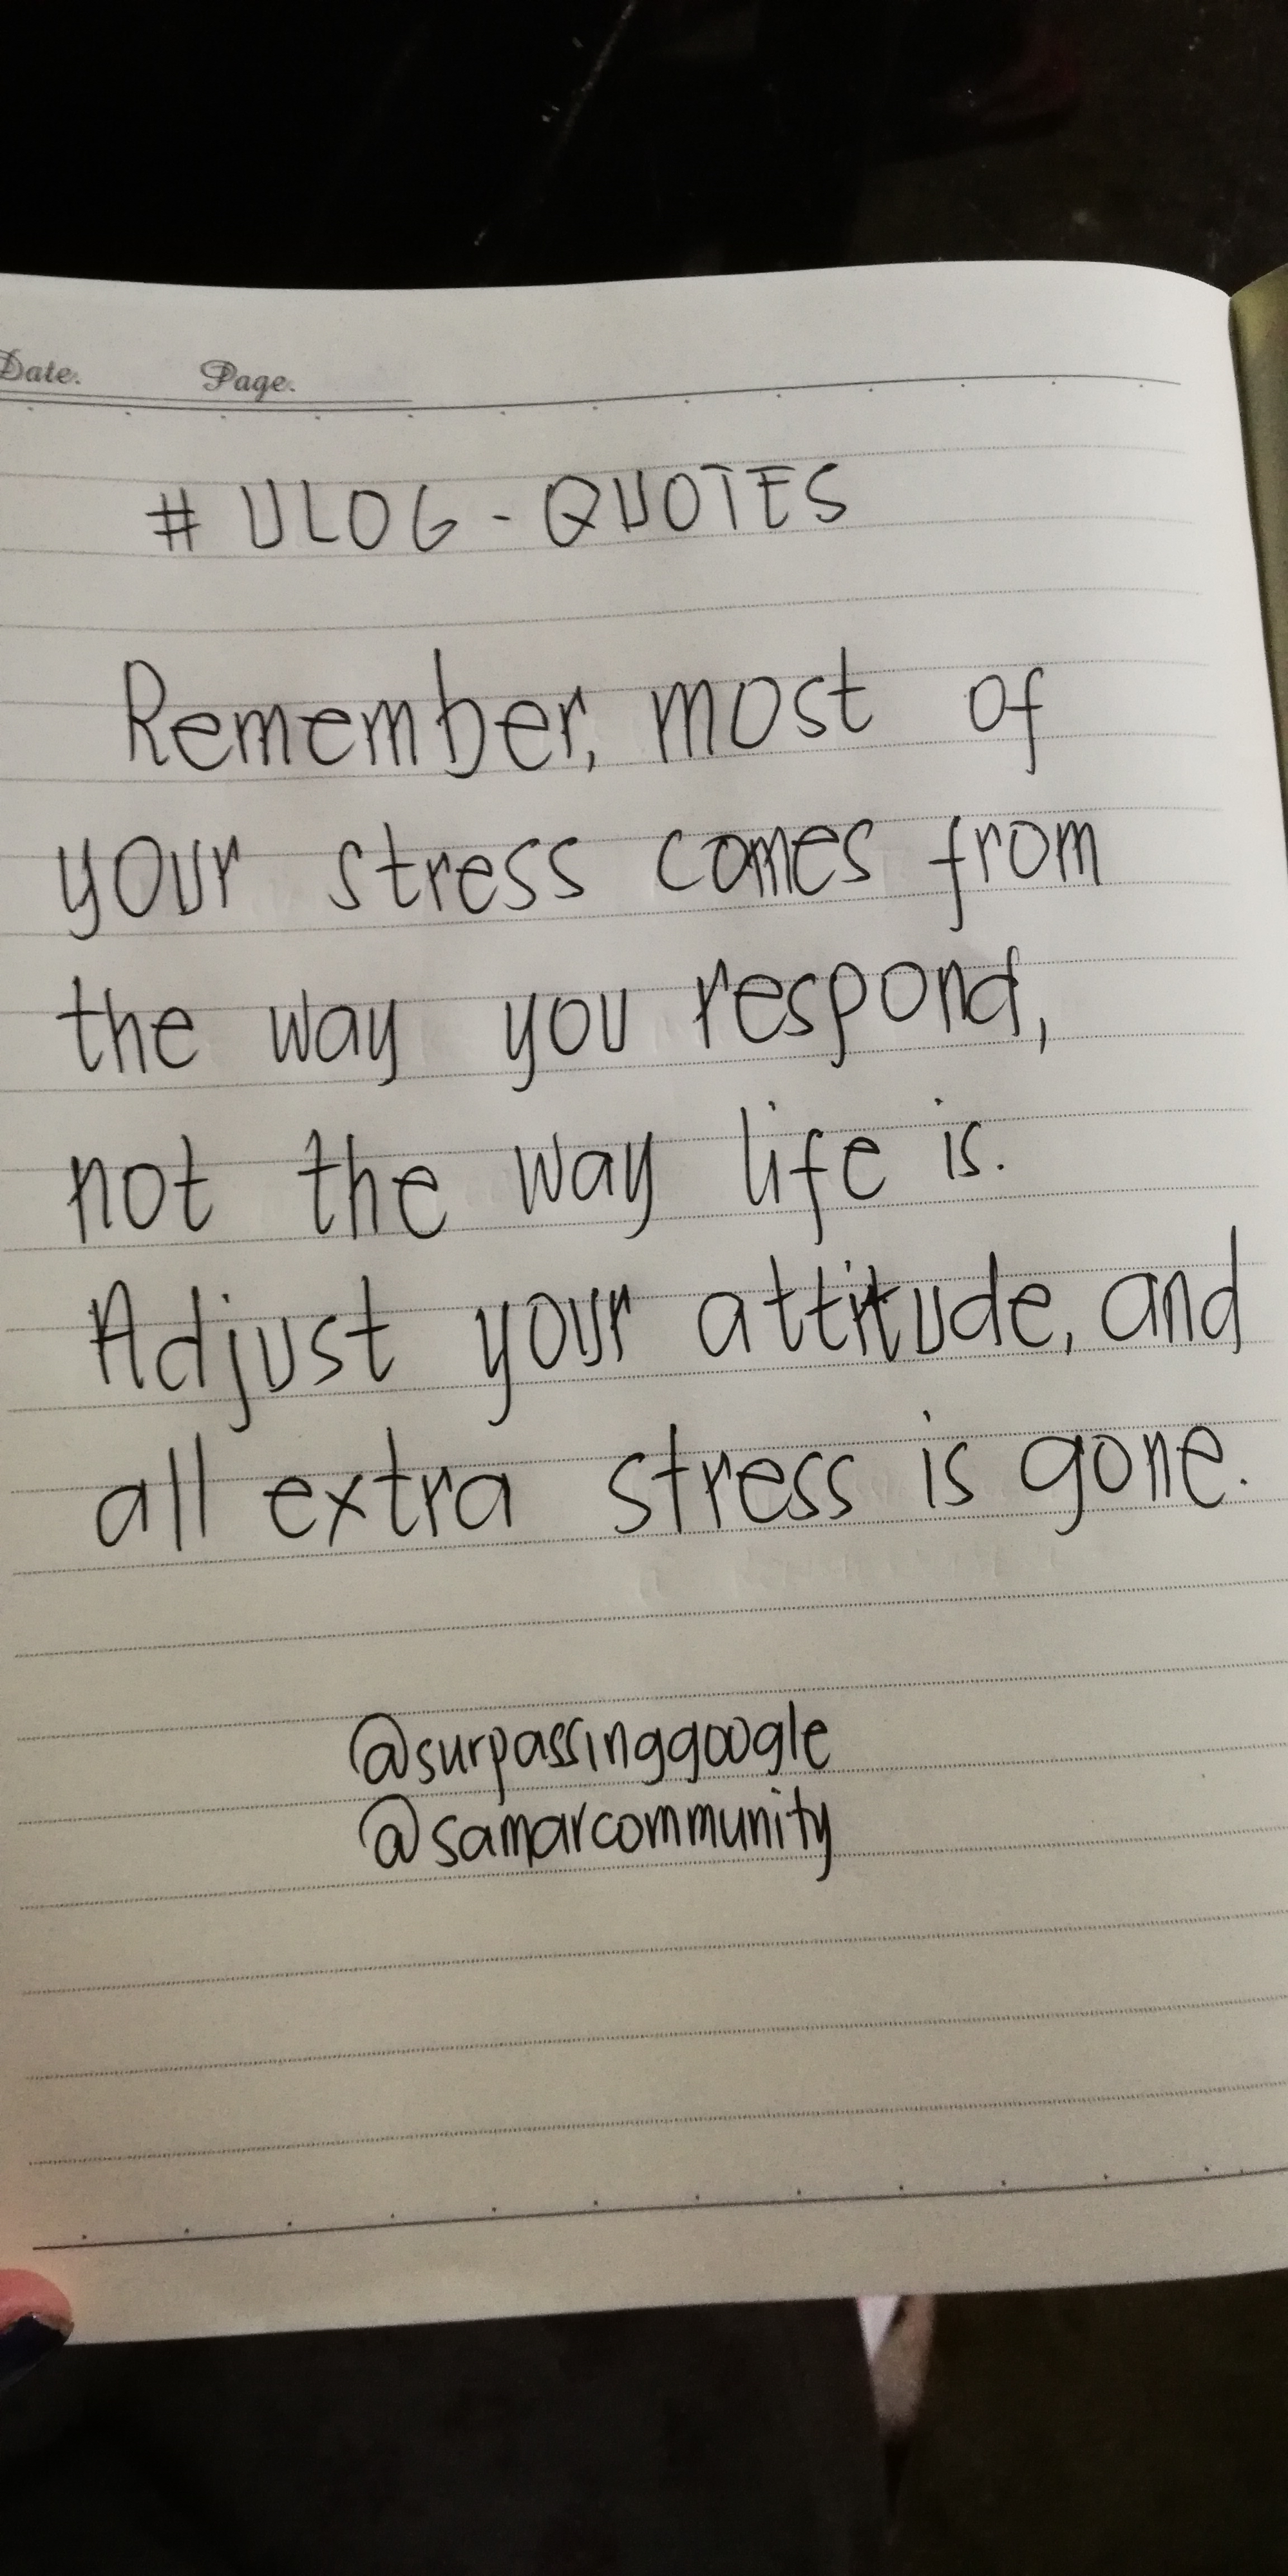 Date. Page.
# ULOG - QUOTES
Remember, most of
your stress comes from
the way you respond,
not the way life is.
Adjust your attitude, and
all extra stress is gone.
@surpassinggoogle
@samarcommunity